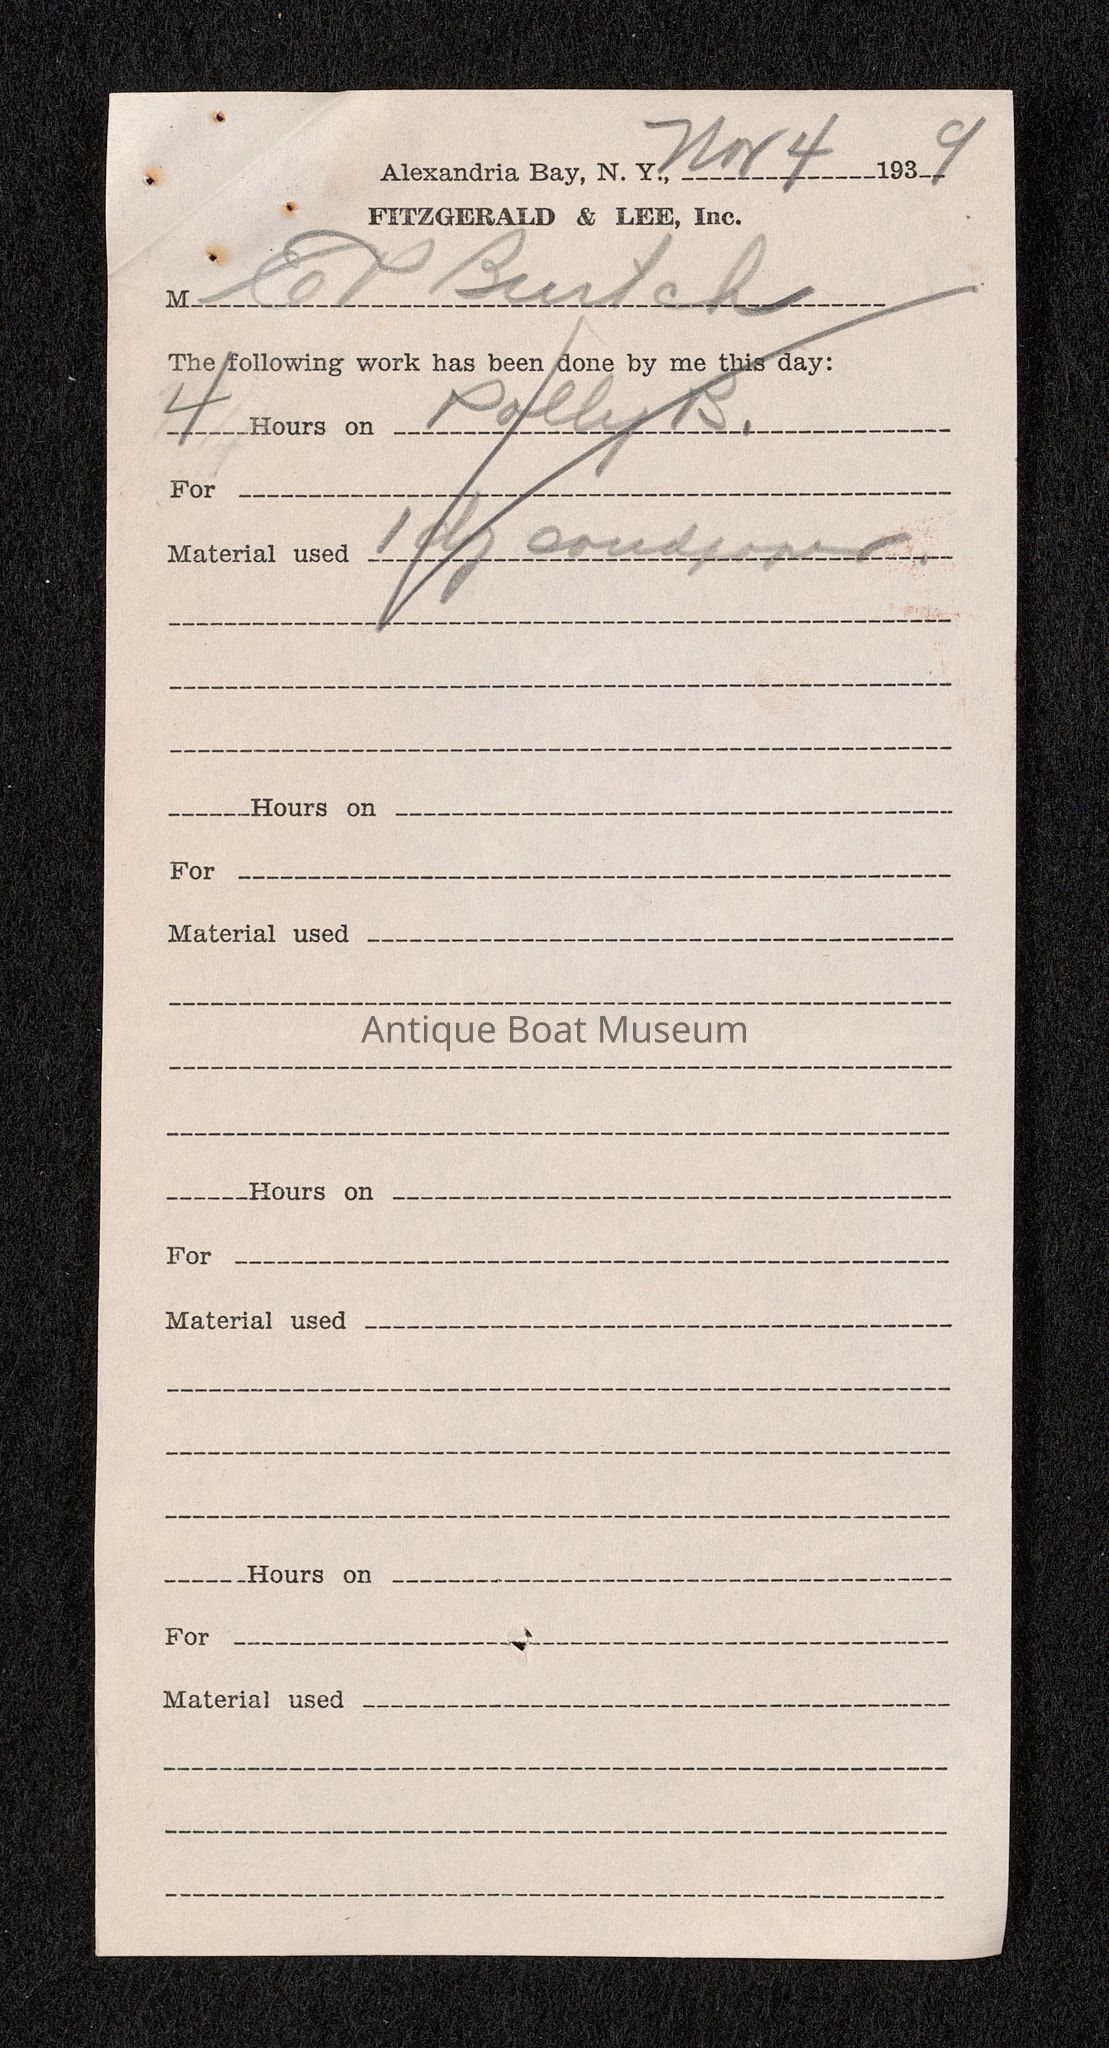 Alexandria Bay, N. Y., Nov 4 1939
FITZGERALD & LEE, Inc.
M E P Burtch
The following work has been done by me this day:
4 Hours on Polly B.
For
Material used 1
Hours on
For
Material used
Antique Boat Museum
Hours on
For
Material used
Hours on
For
Material used